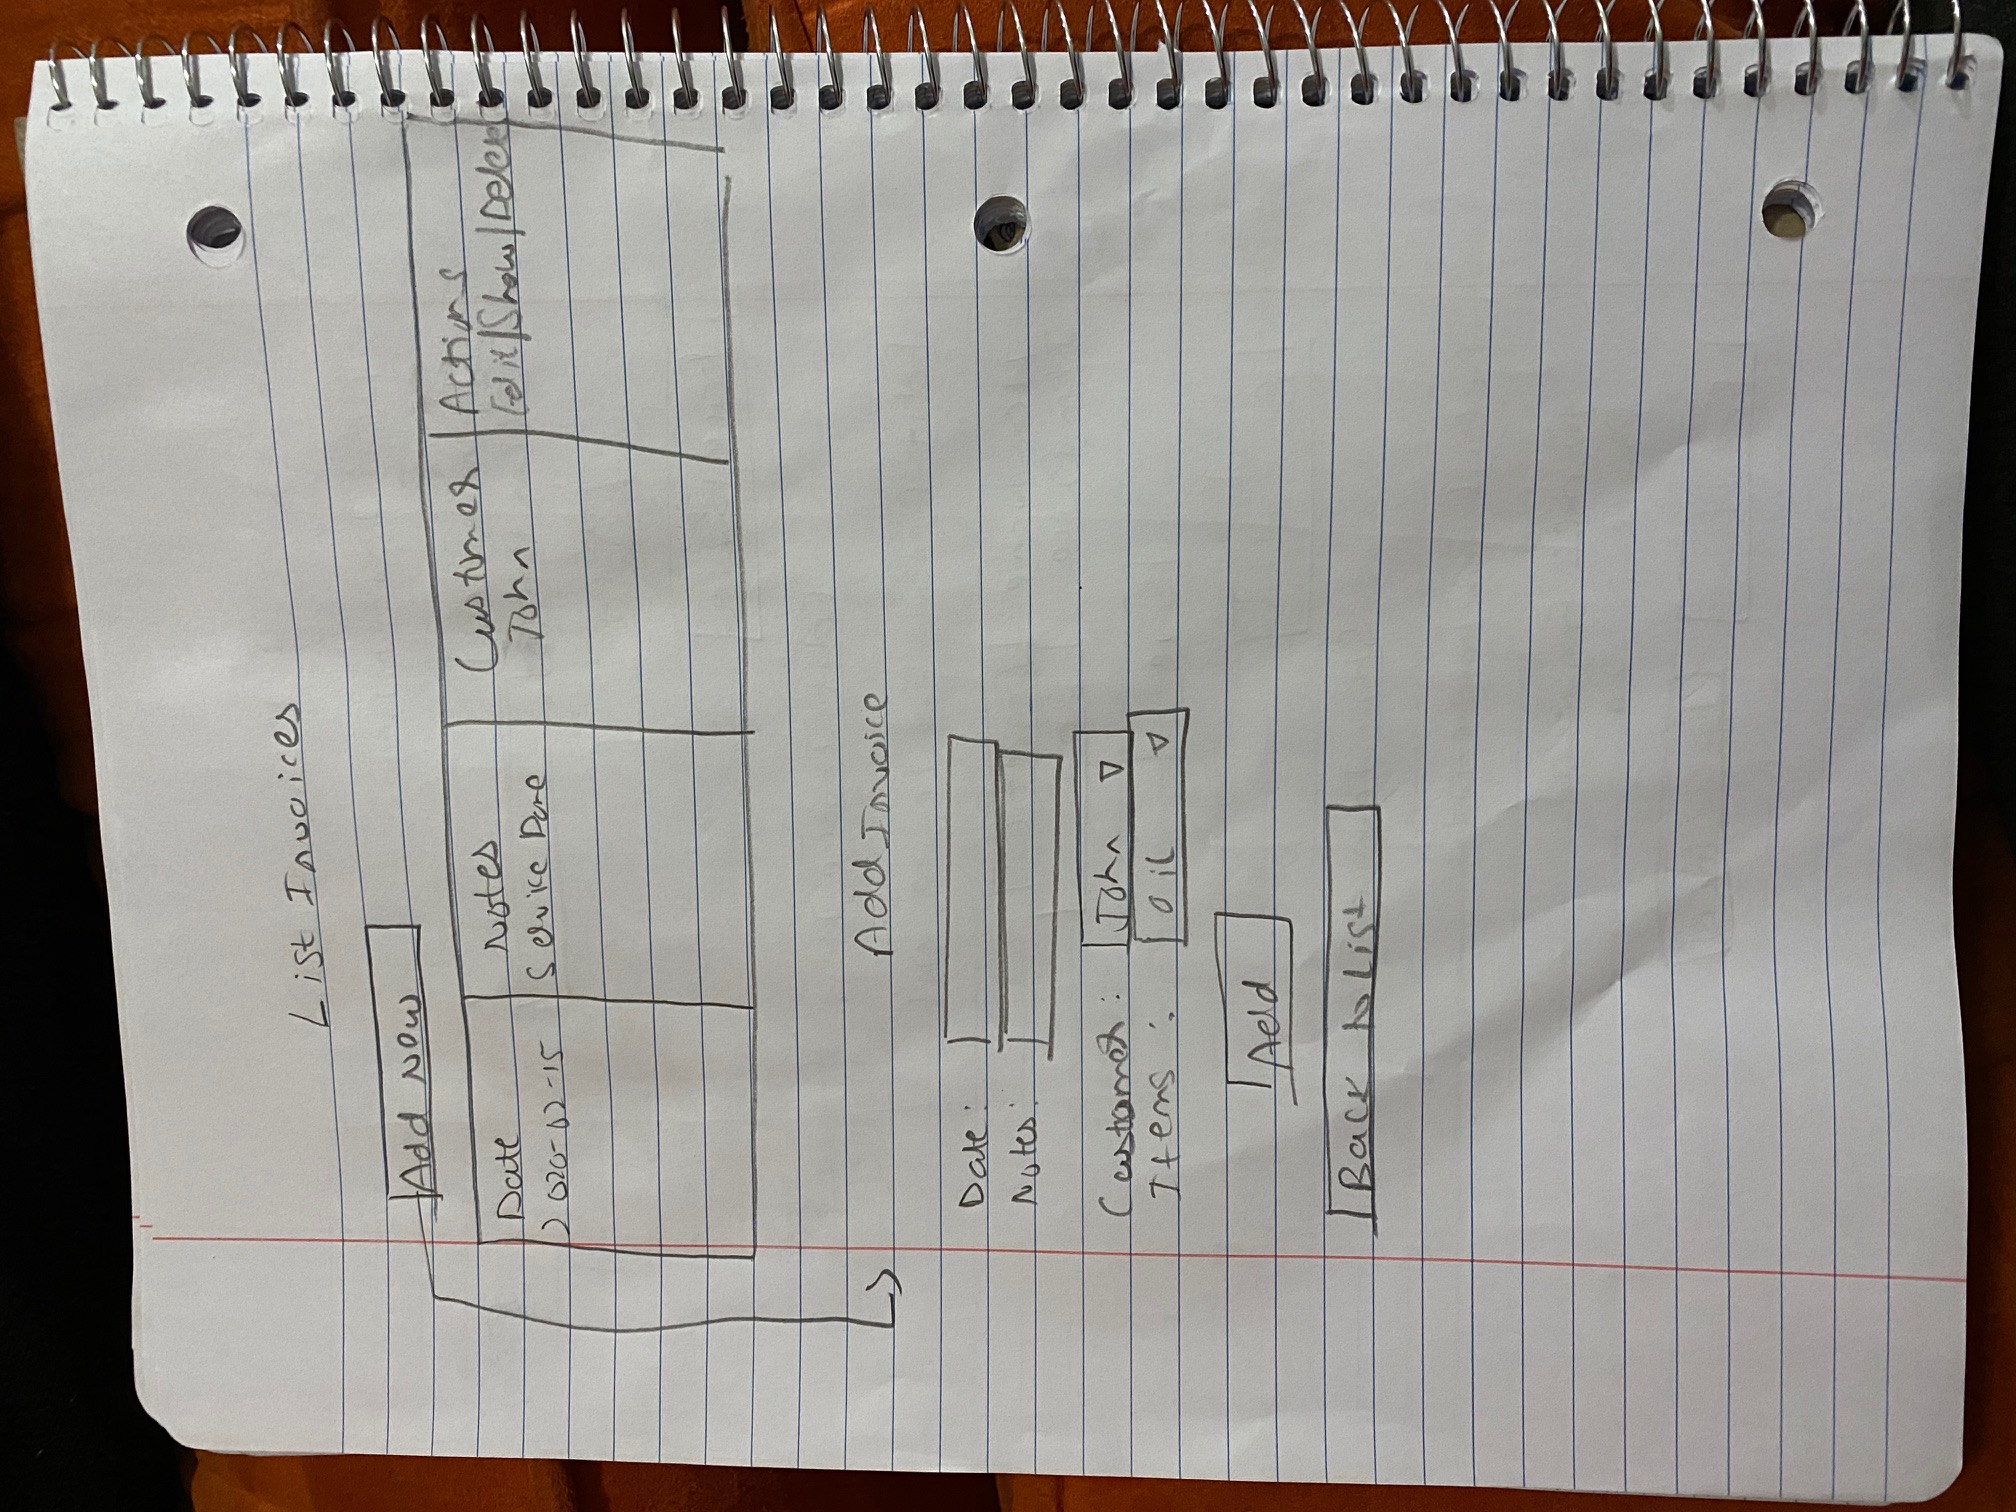 List Invoices
Add Now
Date Notes Customer Actions
2020-02-15 Service Done John Edit/Show/Delete
Add Invoice
Date:
Notes:
Customer: John
Items: Oil
Add
Back to List